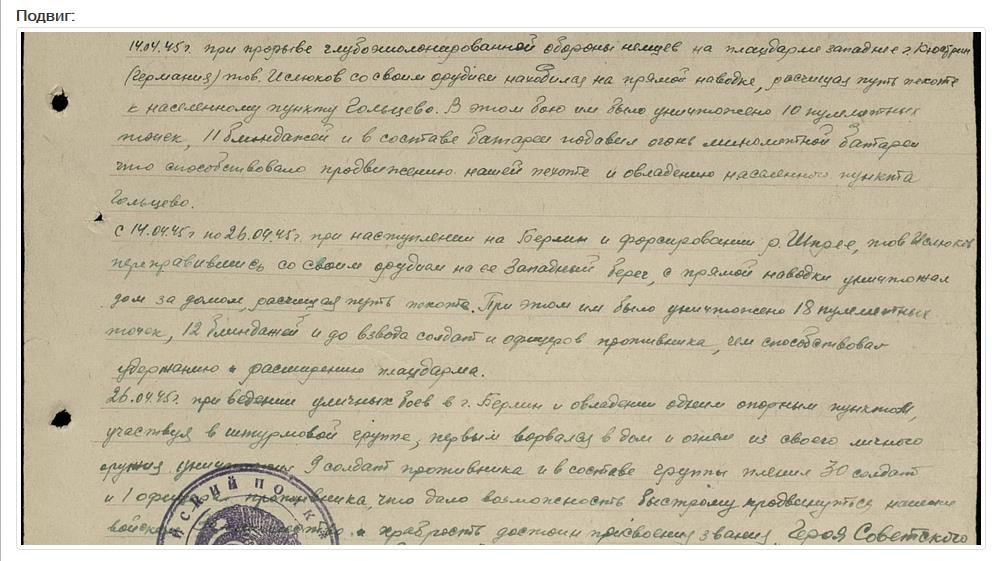 Подвиг:
14.04.45г. при прорыве глубокоэшолонированной обороны немцев на плацдарме западнее г. Кюстрин
(Германия) тов. Ислюков со своим орудием находился на прямой наводке, расчищая путь пехоте
к населенному пункту Гольцево. В этом бою им было уничтожено 10 пулеметных
точек, 11 блиндажей и в составе батареи подавил огонь минометной батареи
что способствовало продвижению нашей пехоте и овладению населенного пункта
Гольцево.
С 14.04.45г по 26.04.45г. при наступлении на Берлин и форсировании р. Шпрее, тов Ислюков
переправившись со своим орудием на ее Западный берег, с прямой наводки уничтожал
дом за домом, расчищая путь пехоте. При этом им было уничтожено 18 пулеметных
точек, 12 блиндажей и до взвода солдат и офицеров противника, чем способствовал
удержанию и расширению плацдарма.
26.04.45г. при ведении уличных боев в г. Берлин и овладении одним опорным пунктом,
участвуя в штурмовой группе, первым ворвался в дом и огнем из своего личного
оружия уничтожил 9 солдат противника и в составе группы пленил 30 солдат
и 1 офицера противника, что дало возможность быстрому продвинуться нашим
войскам. храбрость достоин присвоения звания, Героя Советского